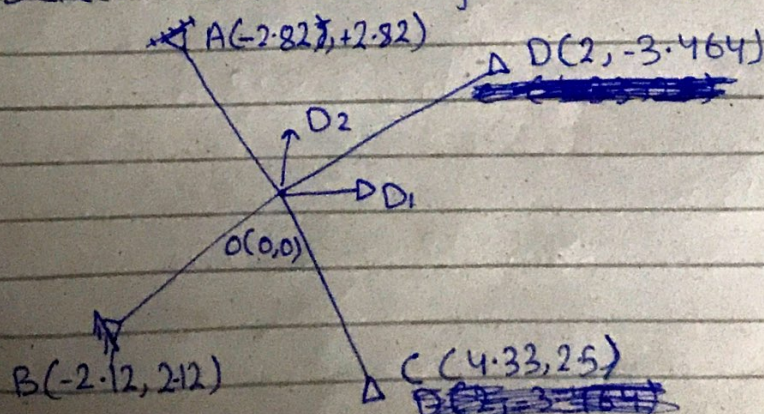 A(-2.82, +2.82)
D(2, -3.464)
D2
D1
O(0,0)
B(-2.12, 2.12)
C (4.33, 2.5)